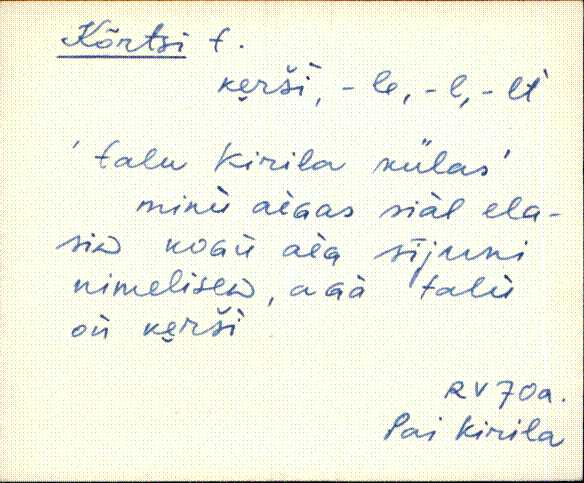 Kõrtsi t.
kẹrši̬, -le, -l, -lt
'talu Kirila külas'
minù aėgas siäl ela-
siD kogù aėg sījuni
nimeliseD, agà talù
où kẹrši
RV 70a.
Pai Kirila